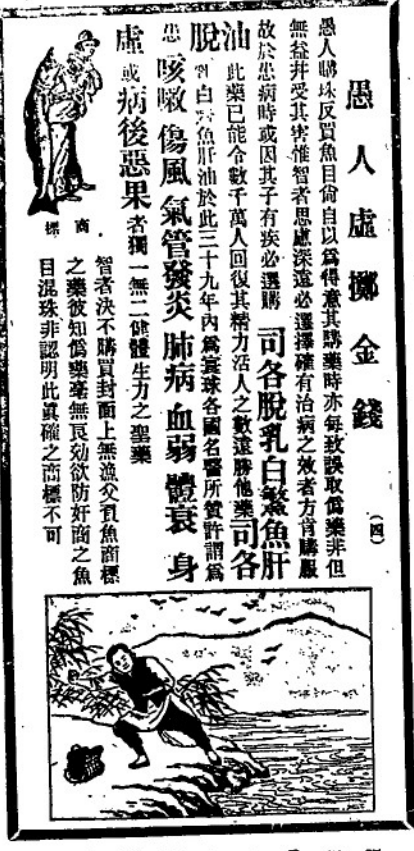 愚人虛擲金錢
(四)
愚人購珠反買魚目尙自以爲得意其購藥時亦每致誤取僞藥非但
無益幷受其害惟智者思慮深遠必選擇確有治病之效者方肯購服
故於患病時或因其子有疾必選購司各脫乳白鰵魚肝
油此藥已能令數千萬人回復其精力活人之數遠勝他藥司各
脫乳白鰵魚肝油於此三十九年內爲寰球各國名醫所贊許謂爲
患咳嗽傷風氣管發炎肺病血弱體衰身
虛或病後惡果者獨一無二健體生力之聖藥
智者決不購買封面上無漁父負魚商標
之藥彼知僞藥毫無良効欲防奸商之魚
目混珠非認明此眞確之商標不可
商標